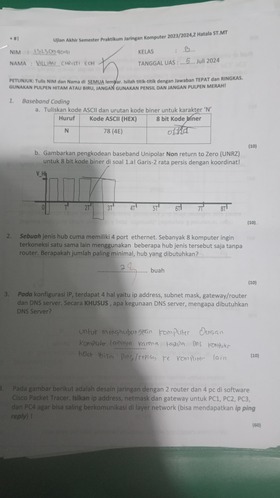 Ujian Akhir Semester Praktikum Jaringan Komputer 2023/2024,2 Hatala ST.MT
NIM :
KELAS : B
NAMA :
TANGGAL UAS : 8 Juli 2024
PETUNJUK: Tulis NIM dan Nama di SEMUA lembar. Isilah titik-titik dengan jawaban TEPAT dan RINGKAS.
GUNAKAN PULPEN HITAM ATAU BIRU, JANGAN GUNAKAN PENSIL DAN JANGAN PULPEN MERAH!
1. Baseband Coding
a. Tuliskan kode ASCII dan urutan kode biner untuk karakter 'N'
Huruf Kode ASCII (HEX) 8 bit Kode biner
N 78 (4E)
(10)
b. Gambarkan pengkodean baseband Unipolar Non return to Zero (UNRZ)
untuk 8 bit kode biner di soal 1.a! Garis-2 rata persis dengan koordinat!
0 T 2T 3T 4T 5T 6T 7T 8T
(10)
2. Sebuah jenis hub cuma memiliki 4 port ethernet. Sebanyak 8 komputer ingin
terkoneksi satu sama lain menggunakan beberapa hub jenis tersebut saja tanpa
router. Berapakah jumlah paling minimal, hub yang dibutuhkan?
buah
(10)
3. Pada konfigurasi IP, terdapat 4 hal yaitu ip address, subnet mask, gateway/router
dan DNS server. Secara KHUSUS , apa kegunaan DNS server, mengapa dibutuhkan
DNS Server?
untuk menghubungkan komputer
komputer lain
(10)
Pada gambar berikut adalah desain jaringan dengan 2 router dan 4 pc di software
Cisco Packet Tracer. Isikan ip address, netmask dan gateway untuk PC1, PC2, PC3,
dan PC4 agar bisa saling berkomunikasi di layer network (bisa mendapatkan ip ping
reply) !